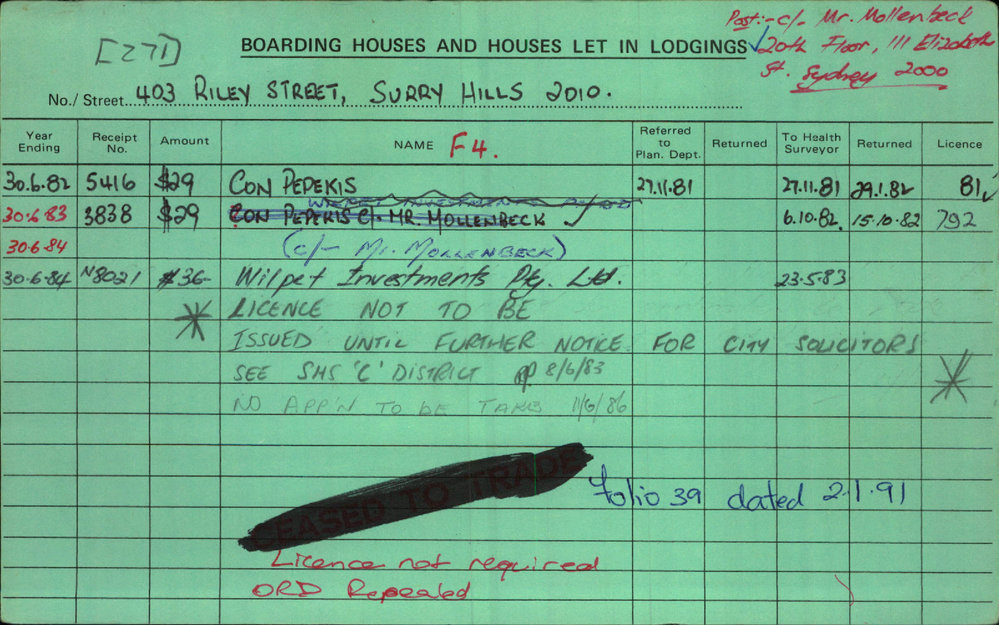 Post:- c/- Mr. Mollenbeck
[271]
BOARDING HOUSES AND HOUSES LET IN LODGINGS ✓ 20th Floor, 111 Elizabeth
St. Sydney 2000
No./ Street 403 RILEY STREET, SURRY HILLS 2010.
Year Ending Receipt No. Amount NAME F4. Referred to Plan. Dept. Returned To Health Surveyor Returned Licence
30.6.82 5416 $29 CON PEPEKIS 27.11.81 27.11.81 29.1.82 81 ✓
WILPET INVESTMENTS
30.6.83 3838 $29 CON PEPEKIS C/- MR. MOLLENBECK ✓ 6.10.82. 15.10.82 792
30.6.84 (c/- Mr. MOLLENBECK)
30.6.84 N8021 $36- Wilpet Investments Pty. Ltd. 23.5.83
LICENCE NOT TO BE
ISSUED UNTIL FURTHER NOTICE FOR CITY SOLICITORS
SEE SHS 'C' DISTRICT 8/6/83
NO APP'N TO BE TAKE 11/6/86
CEASED TO TRADE
Folio 39 dated 2.1.91
Licence not required
ORD Repealed